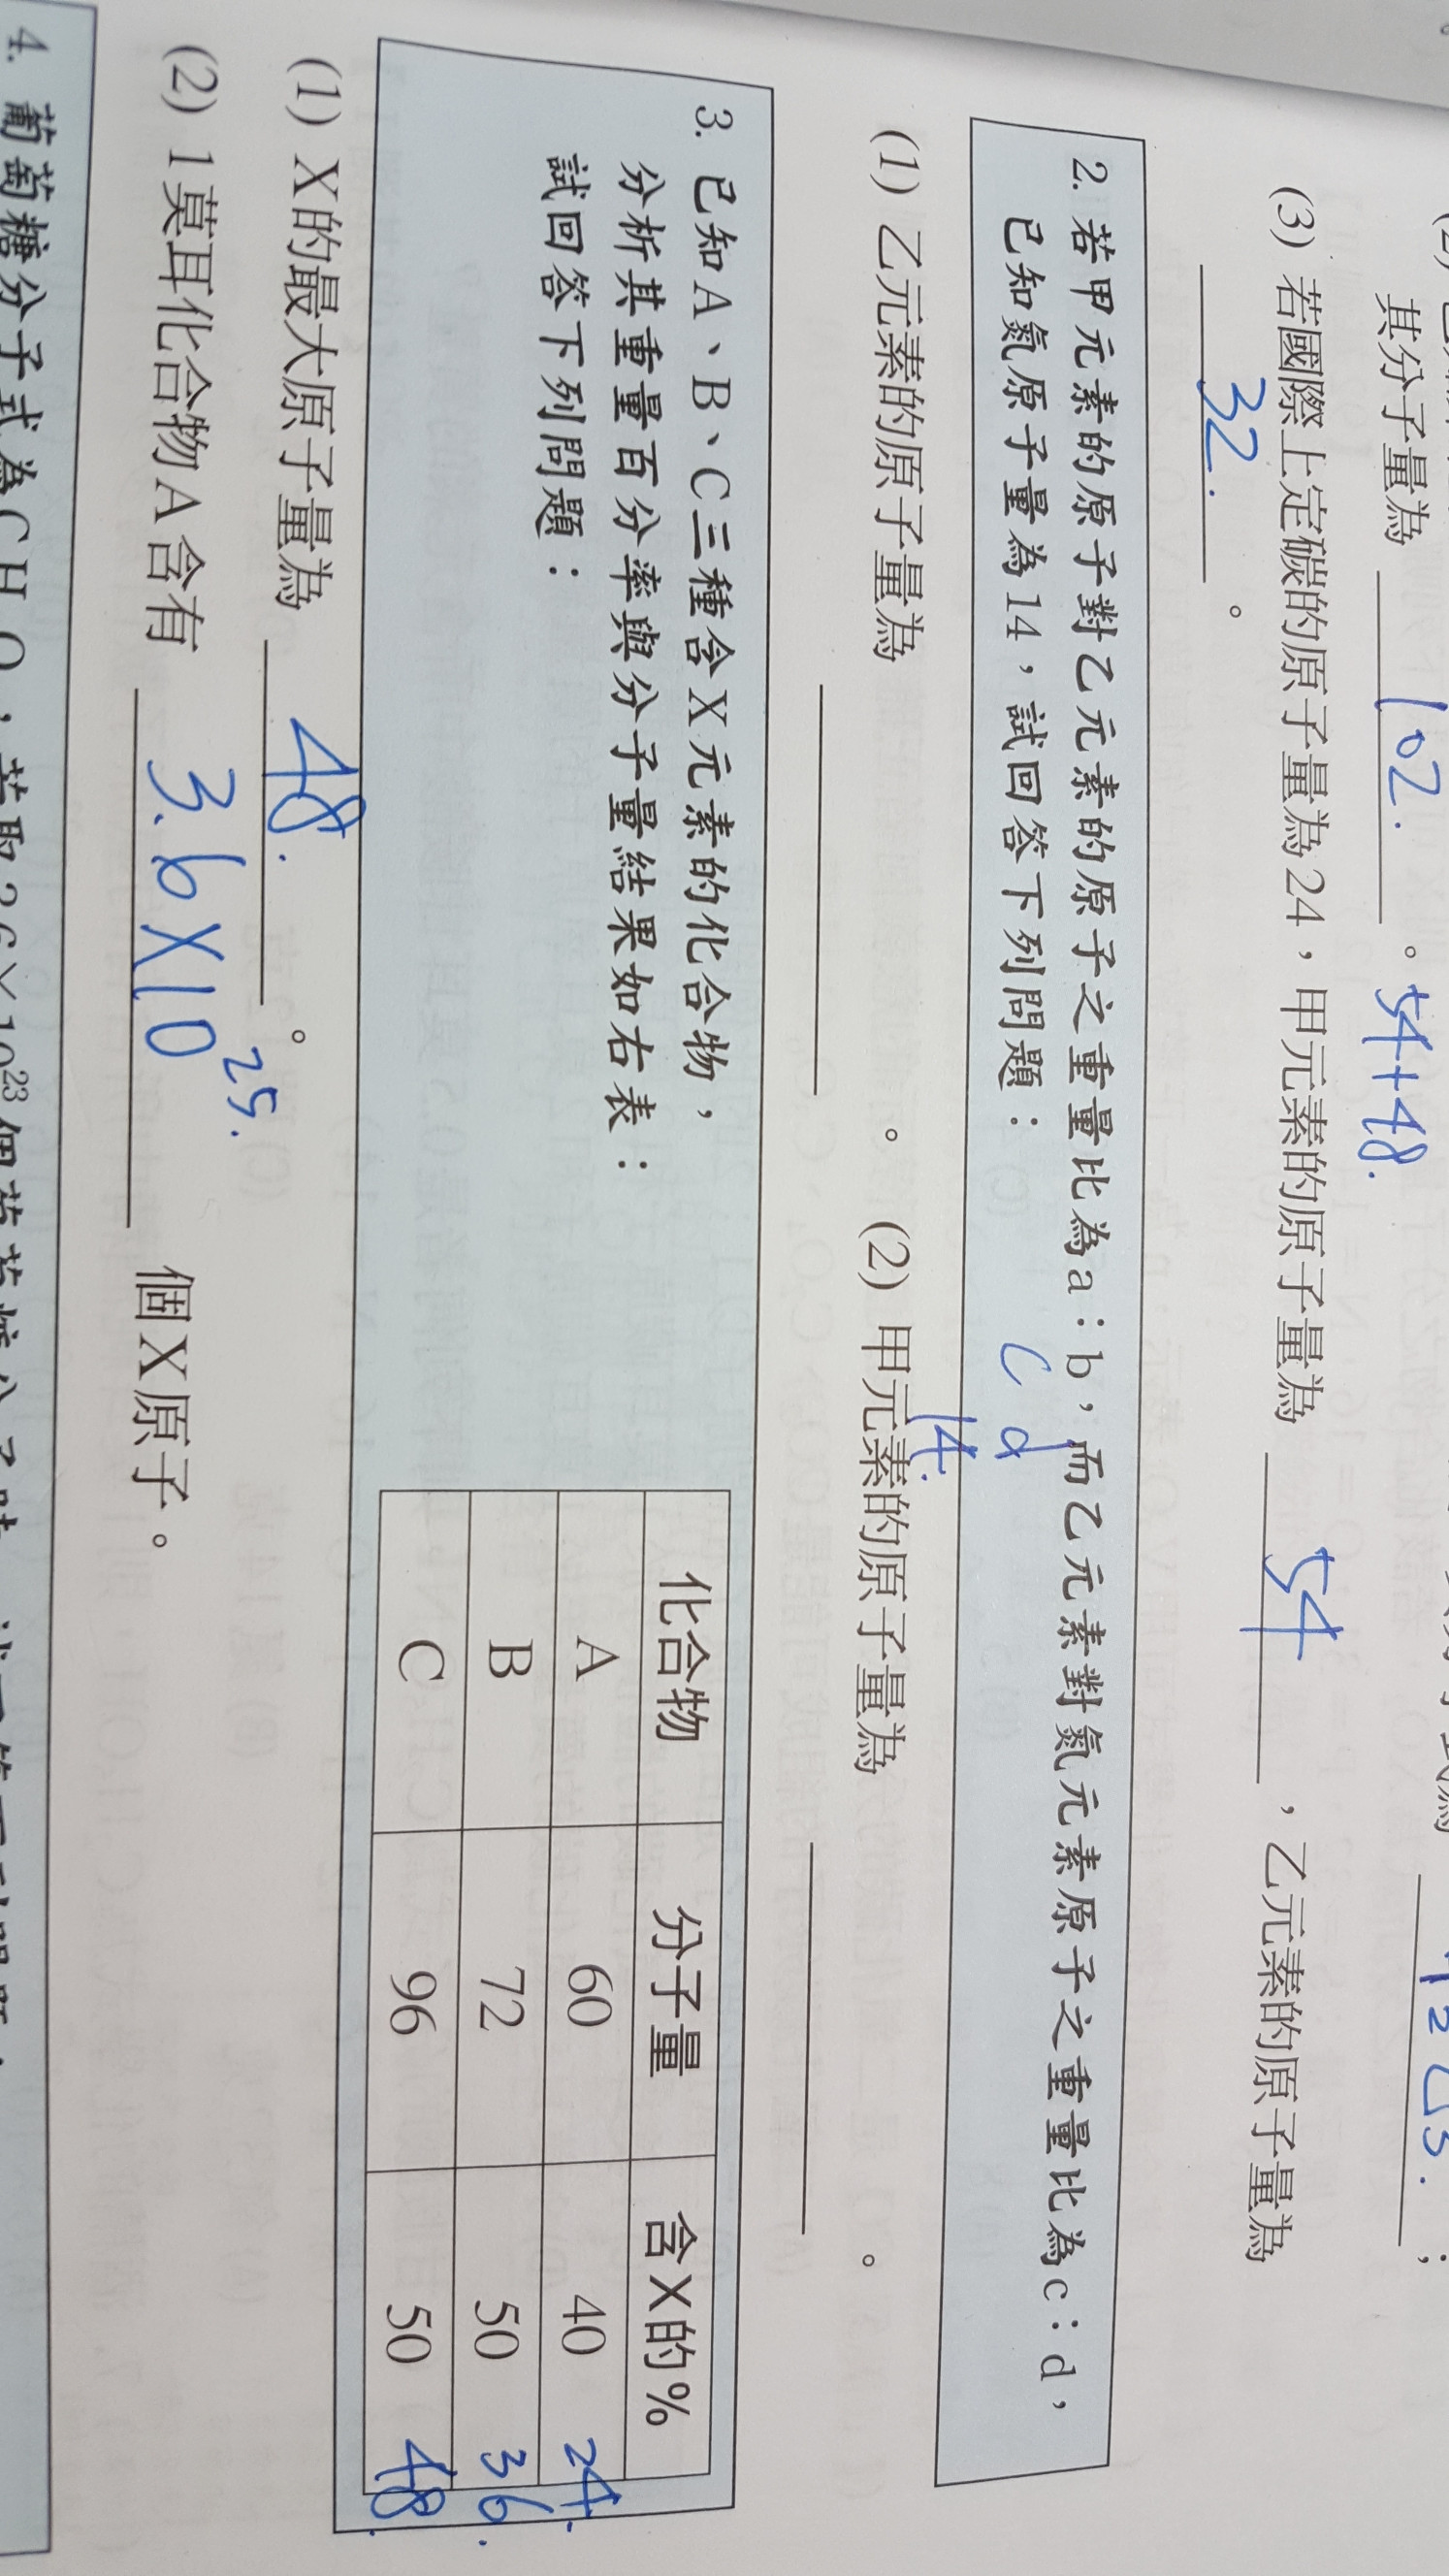 其分子量為 102. 。 54+48.
(3) 若國際上定碳的原子量為24，甲元素的原子量為 54 ，乙元素的原子量為
32. 。
2. 若甲元素的原子對乙元素的原子之重量比為a：b，而乙元素對氮元素原子之重量比為c：d，
已知氮原子量為14，試回答下列問題： c d
14.
(1) 乙元素的原子量為 。 (2) 甲元素的原子量為 。
3. 已知A、B、C三種含X元素的化合物，
分析其重量百分率與分子量結果如右表：
試回答下列問題：
化合物 分子量 含X的%
A 60 40 24.
B 72 50 36.
C 96 50 48.
(1) X的最大原子量為 48. 。
(2) 1莫耳化合物A含有 3.6×10²⁵. 個X原子。
4. 葡萄糖分子式為